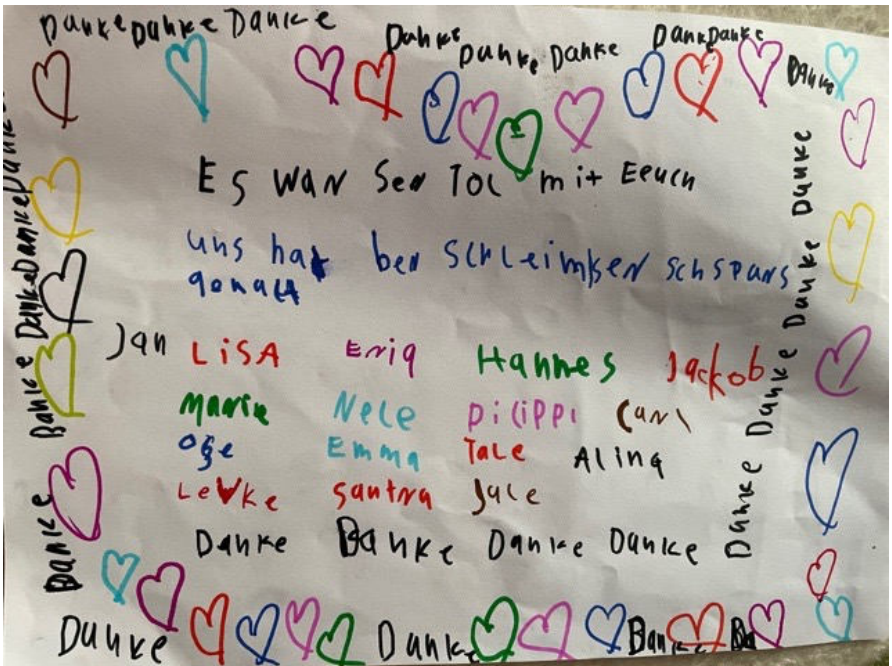 Danke Danke Danke Danke Danke Danke Danke Danke Danke
Es war Ser Tol mit Eeuch
uns hat ber Schleimker schspans
gemacht
Jan LiSA Eriq Hannes Jackob
Marie Nele Pilippi Carl
Oge Emma Tale Alina
Levke Santra Jale
Danke Danke Danke Danke
Danke Danke
Danke Danke Danke Danke
Danke Danke Danke Danke